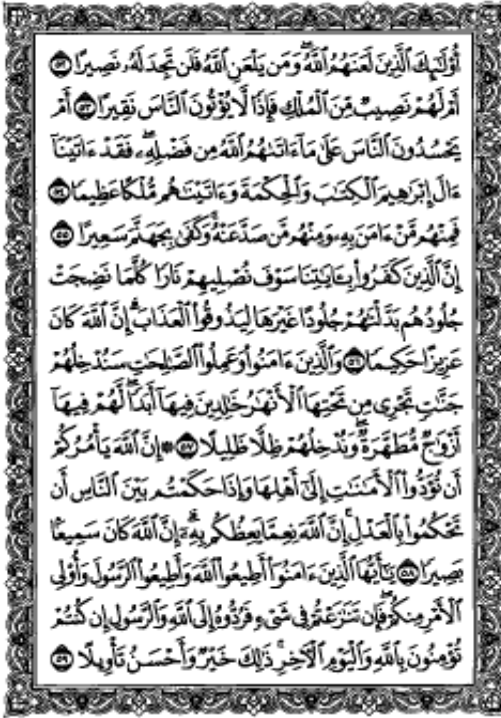 أُو۟لَٰٓئِكَ ٱلَّذِينَ لَعَنَهُمُ ٱللَّهُ ۖ وَمَن يَلْعَنِ ٱللَّهُ فَلَن تَجِدَ لَهُۥ نَصِيرًا ٥٢
أَمْ لَهُمْ نَصِيبٌ مِّنَ ٱلْمُلْكِ فَإِذًا لَّا يُؤْتُونَ ٱلنَّاسَ نَقِيرًا ٥٣ أَمْ
يَحْسُدُونَ ٱلنَّاسَ عَلَىٰ مَآ ءَاتَىٰهُمُ ٱللَّهُ مِن فَضْلِهِۦ ۖ فَقَدْ ءَاتَيْنَآ
ءَالَ إِبْرَٰهِيمَ ٱلْكِتَٰبَ وَٱلْحِكْمَةَ وَءَاتَيْنَٰهُم مُّلْكًا عَظِيمًا ٥٤
فَمِنْهُم مَّنْ ءَامَنَ بِهِۦ وَمِنْهُم مَّن صَدَّ عَنْهُ ۚ وَكَفَىٰ بِجَهَنَّمَ سَعِيرًا ٥٥
إِنَّ ٱلَّذِينَ كَفَرُوا۟ بِـَٔايَٰتِنَا سَوْفَ نُصْلِيهِمْ نَارًا كُلَّمَا نَضِجَتْ
جُلُودُهُم بَدَّلْنَٰهُمْ جُلُودًا غَيْرَهَا لِيَذُوقُوا۟ ٱلْعَذَابَ ۗ إِنَّ ٱللَّهَ كَانَ
عَزِيزًا حَكِيمًا ٥٦ وَٱلَّذِينَ ءَامَنُوا۟ وَعَمِلُوا۟ ٱلصَّٰلِحَٰتِ سَنُدْخِلُهُمْ
جَنَّٰتٍ تَجْرِى مِن تَحْتِهَا ٱلْأَنْهَٰرُ خَٰلِدِينَ فِيهَآ أَبَدًا ۖ لَّهُمْ فِيهَآ
أَزْوَٰجٌ مُّطَهَّرَةٌ ۖ وَنُدْخِلُهُمْ ظِلًّا ظَلِيلًا ٥٧ ۞ إِنَّ ٱللَّهَ يَأْمُرُكُمْ
أَن تُؤَدُّوا۟ ٱلْأَمَٰنَٰتِ إِلَىٰٓ أَهْلِهَا وَإِذَا حَكَمْتُم بَيْنَ ٱلنَّاسِ أَن
تَحْكُمُوا۟ بِٱلْعَدْلِ ۚ إِنَّ ٱللَّهَ نِعِمَّا يَعِظُكُم بِهِۦٓ ۗ إِنَّ ٱللَّهَ كَانَ سَمِيعًۢا
بَصِيرًا ٥٨ يَٰٓأَيُّهَا ٱلَّذِينَ ءَامَنُوٓا۟ أَطِيعُوا۟ ٱللَّهَ وَأَطِيعُوا۟ ٱلرَّسُولَ وَأُو۟لِى
ٱلْأَمْرِ مِنكُمْ ۖ فَإِن تَنَٰزَعْتُمْ فِى شَىْءٍ فَرُدُّوهُ إِلَى ٱللَّهِ وَٱلرَّسُولِ إِن كُنتُمْ
تُؤْمِنُونَ بِٱللَّهِ وَٱلْيَوْمِ ٱلْـَٔاخِرِ ۚ ذَٰلِكَ خَيْرٌ وَأَحْسَنُ تَأْوِيلًا ٥٩